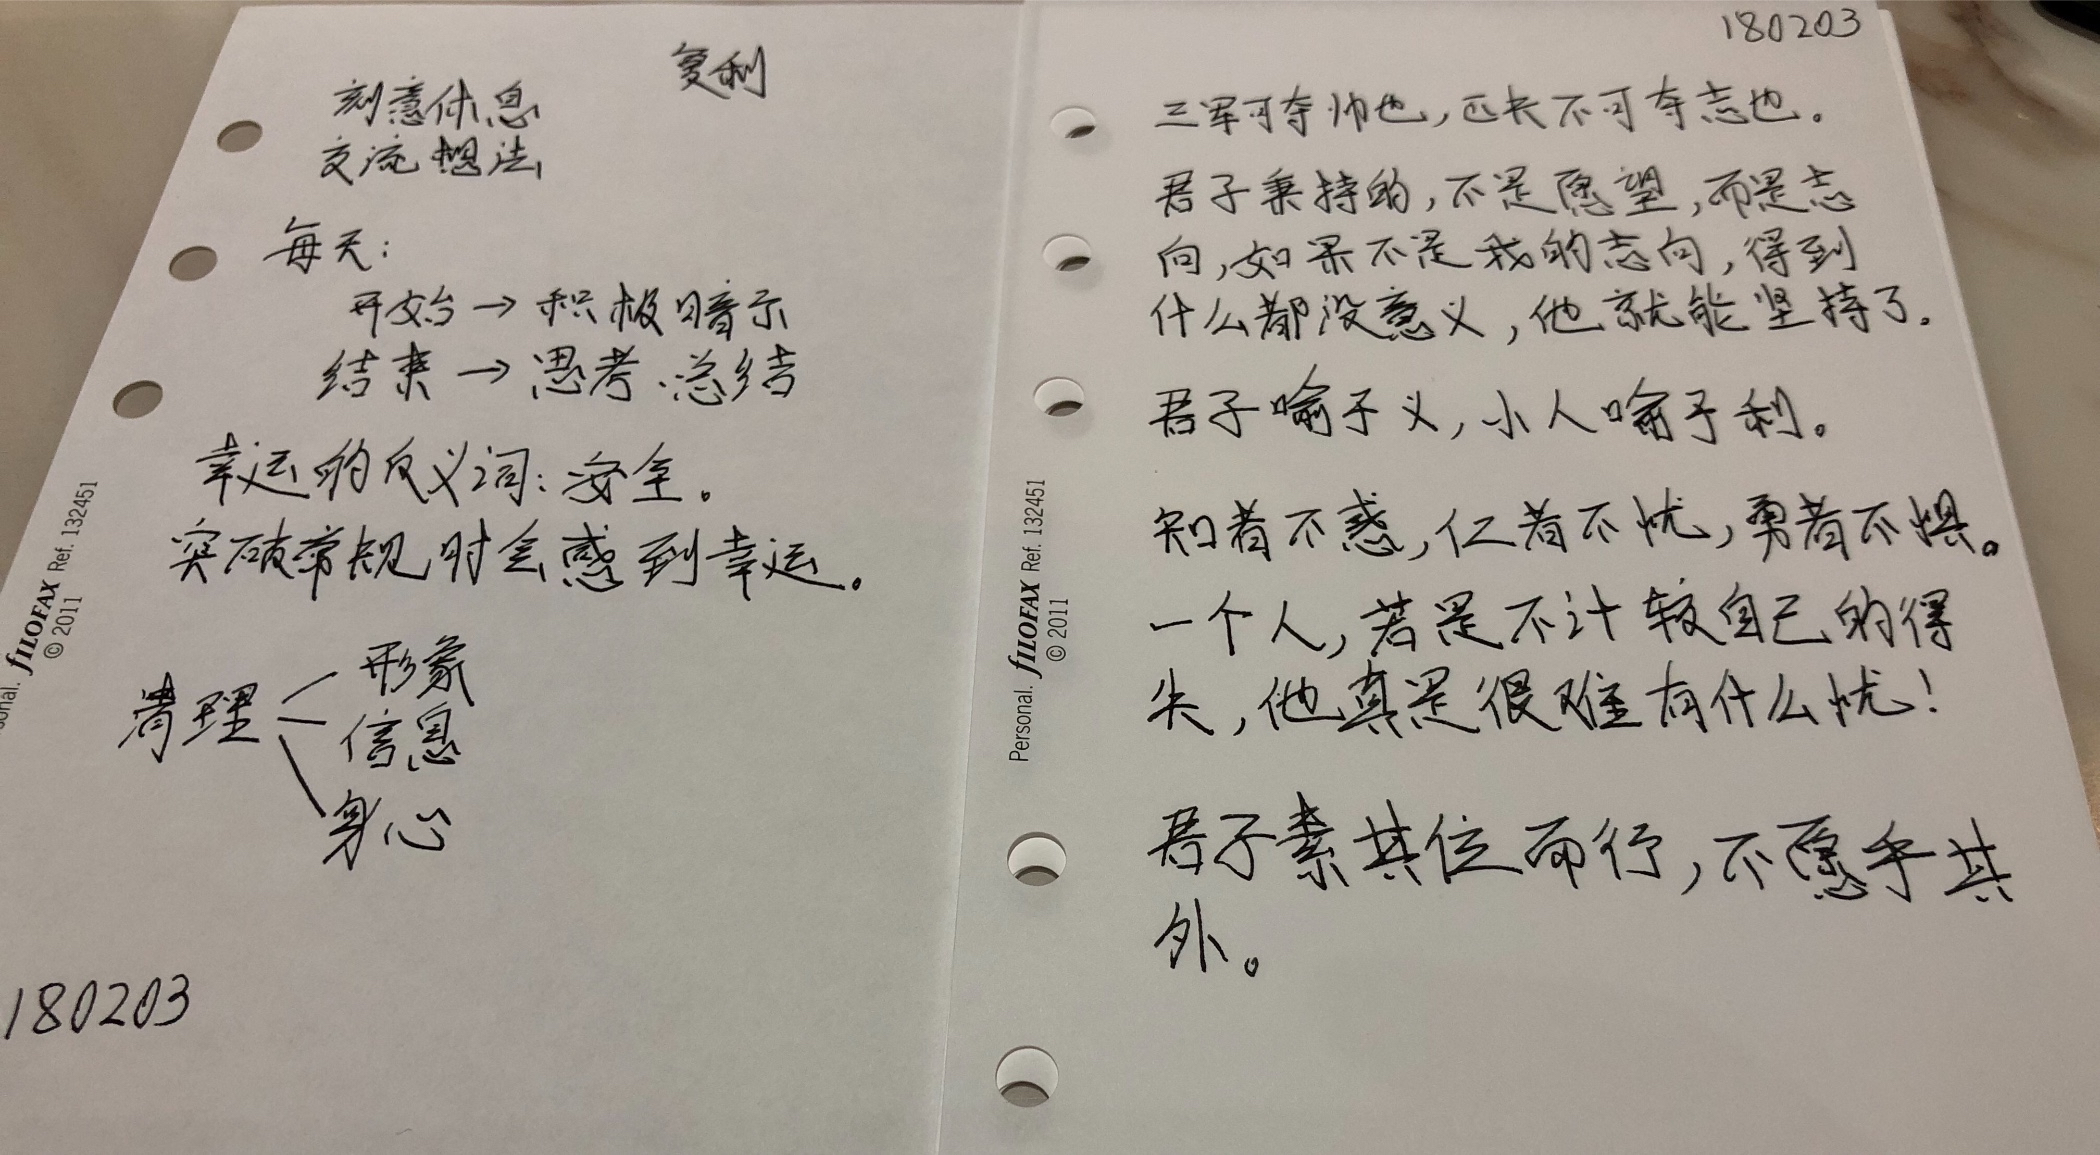 复利
刻意休息
交流想法
每天：
开始→积极暗示
结束→思考、总结
幸运的反义词：安全。
突破常规时会感到幸运。
清理
形象
信息
身心
180203
sonal. fILOFAX Ref. 132451
© 2011
180203
三军可夺帅也，匹夫不可夺志也。
君子秉持的，不是愿望，而是志
向，如果不是我的志向，得到
什么都没意义，他就能坚持了。
君子喻于义，小人喻于利。
知者不惑，仁者不忧，勇者不惧。
一个人，若是不计较自己的得
失，他真是很难有什么忧！
君子素其位而行，不愿乎其
外。
Personal. fILOFAX Ref. 132451
© 2011